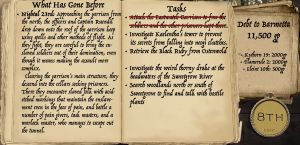 What Has Gone Before
• Nightal 23rd: Approaching the garrison from
the north, the officers and Captain Romell
drop down onto the roof of the garrison keep
using spells and other methods of flight. As
they fight, they are careful to bring the en-
slaved soldiers out of their domination, even
though it means making the assault more
complex.
Clearing the garrison's main structure, they
descend into the cellars tracking prisoners.
There they encounter slaved folk, with acid-
etched markings that maintain the enslave-
ment even in the face of pain, and battle a
number of pain givers, task masters, and a
overlook master, who manages to escape out
the tunnel.
Tasks
• Attack the Eastwatch Garrison to free the
soldiers and the other prisoners kept there
• Investigate Karlentha's tower to prevent
its secrets from falling into wrong claws
• Retrieve the Black Ruby from Outremold
• Investigate the weird thorny drake at the
headwaters of the Sweetgrove River
• Search woodlands north or south of
Sweetgrove to find and talk with hostile
plants
Debt to Barnetta
11,500 gp
• Kythorn 19: 2000gp
• Flamerule 2: 2000gp
• Eleint 10th: 500gp
8TH